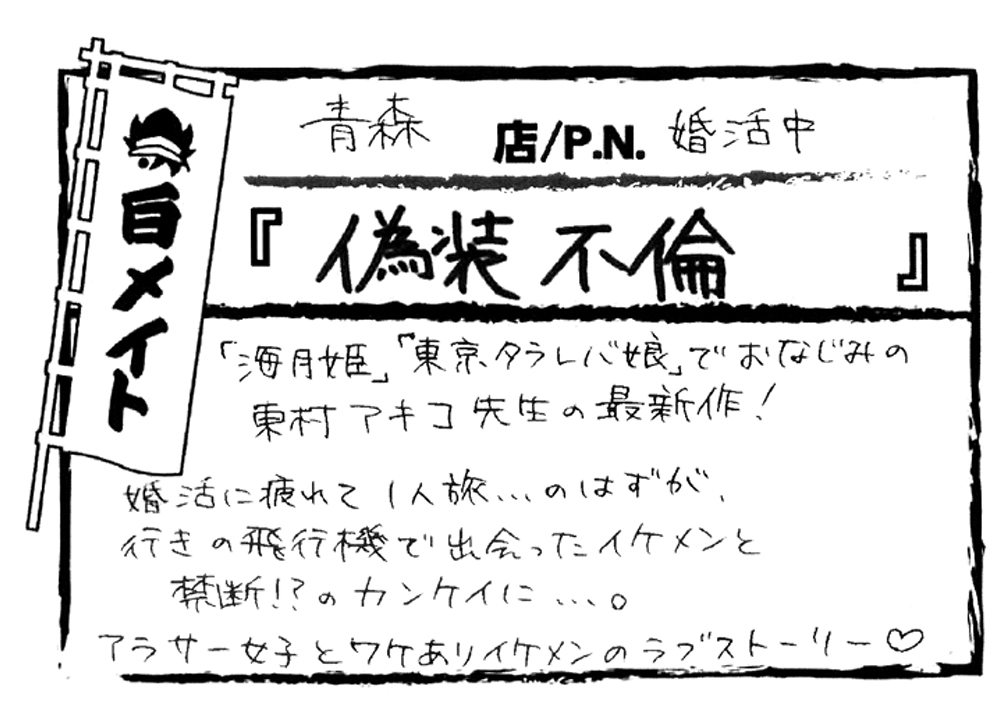 白メイト
青森 店/P.N. 婚活中
『偽装不倫』
「海月姫」「東京タラレバ娘」でおなじみの
東村アキコ先生の最新作!
婚活に疲れて1人旅...のはずが、
行きの飛行機で出会ったイケメンと
禁断!?のカンケイに...。
アラサー女子とワケありイケメンのラブストーリー♡